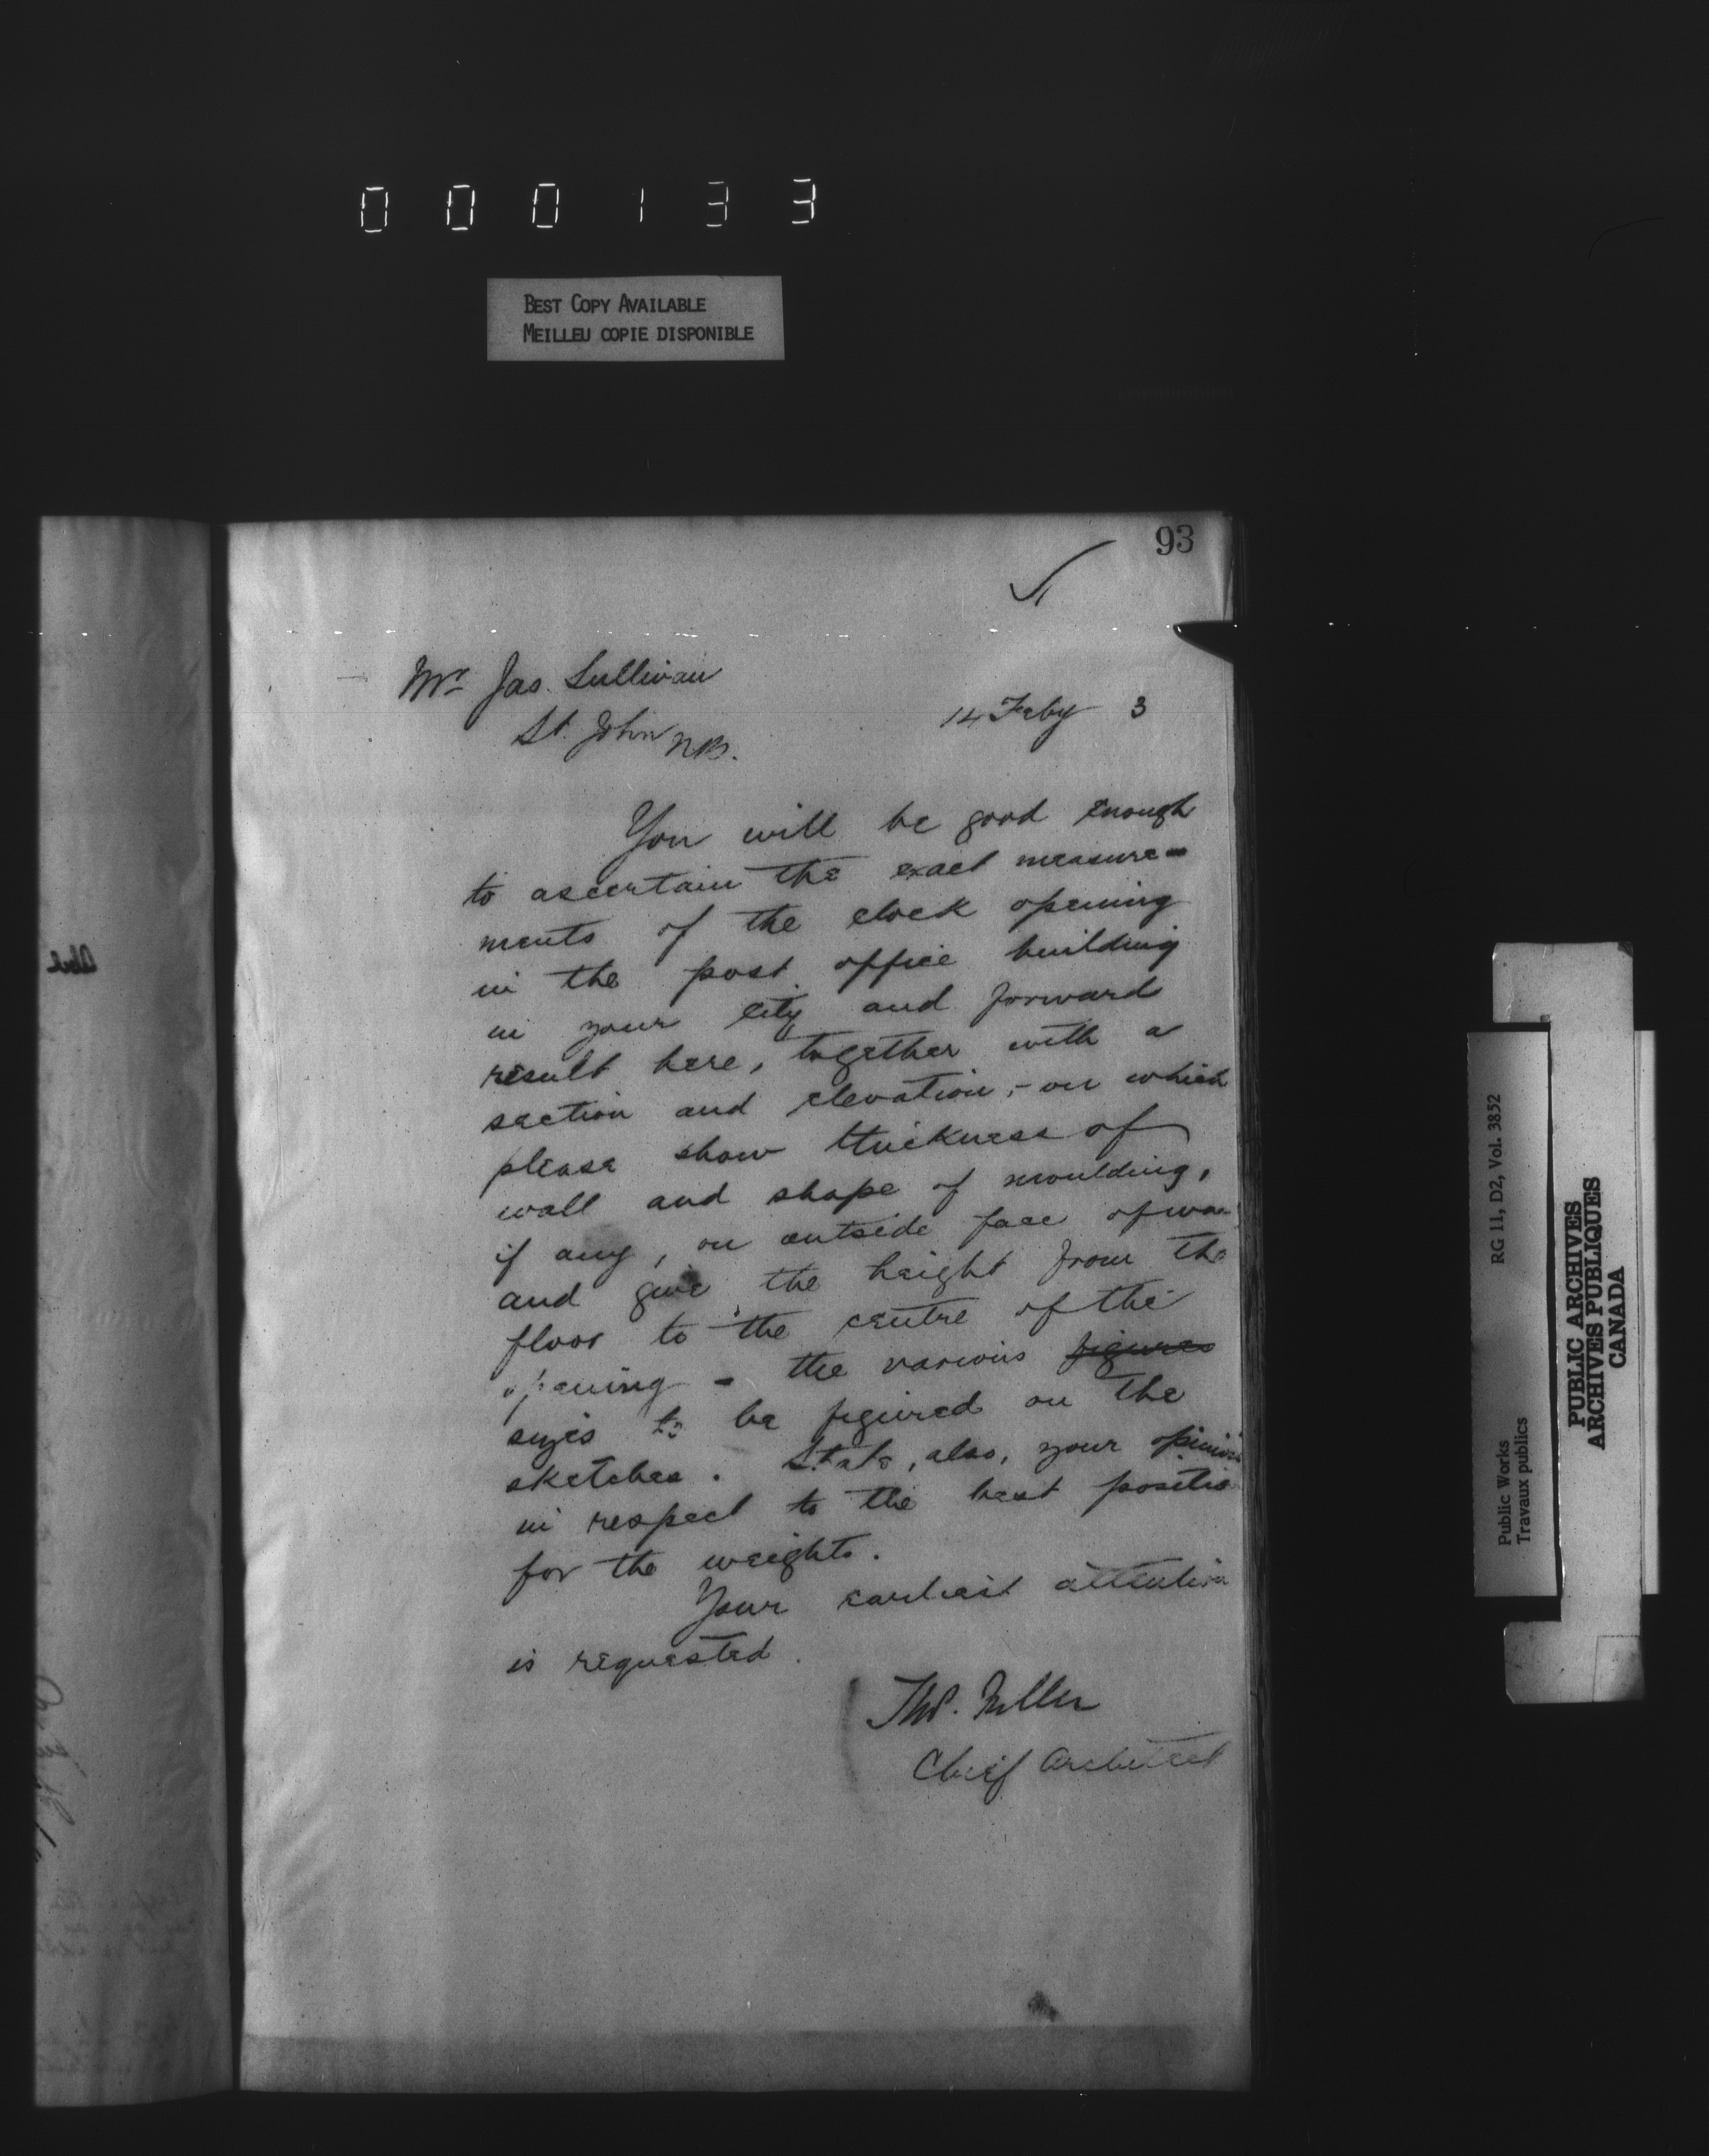 000133
BEST COPY AVAILABLE
MEILLEU COPIE DISPONIBLE
93
Mr Jas. Sullivan
St. John N.B.
14 Feby 3
You will be good enough
to ascertain the exact measure-
ments of the clock opening
in the post office building
in your city and forward
result here, together with a
section and elevation, - on which
please show thickness of
wall and shape of moulding,
if any, on outside face of wa
and give the height from the
floor to the centre of the
opening - the various figures
sizes to be figured on the
sketches. State, also, your opinion
in respect to the best positio
for the weights.
Your earliest attention
is requested.
Thos. Fuller
Chief Architect
RG 11, D2, Vol. 3852
Public Works
Travaux publics
PUBLIC ARCHIVES
ARCHIVES PUBLIQUES
CANADA